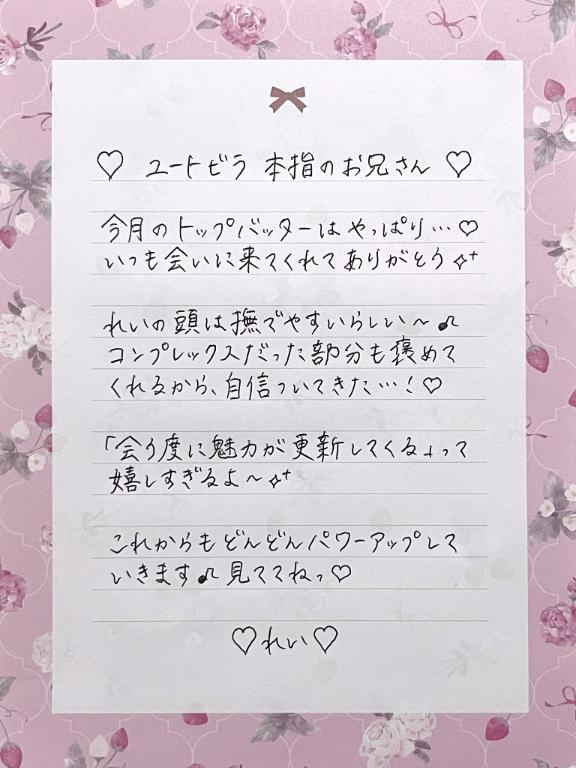 ♡ ユートピラ 本指のお兄さん ♡
今月のトップバッターはやっぱり…♡
いつも会いに来てくれてありがとう✧⁺
れいの頭は撫でやすいらしい〜♪
コンプレックスだった部分も褒めて
くれるから、自信ついてきた…！♡
「会う度に魅力が更新してくる」って
嬉しすぎるよ〜✧⁺
これからもどんどんパワーアップして
いきます♫ 見ててねっ♡
♡れい♡